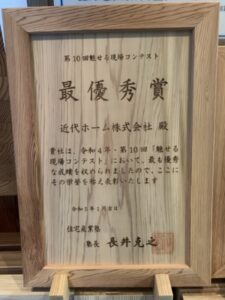 第10回魅せる現場コンテスト
最優秀賞
近代ホーム株式会社 殿
貴社は、令和4年・第10回「魅せる
現場コンテスト」において、最も優秀
な成績を収められましたので、ここに
その栄誉を称え表彰いたします
令和5年1月吉日
住宅産業塾
塾長 長井克之